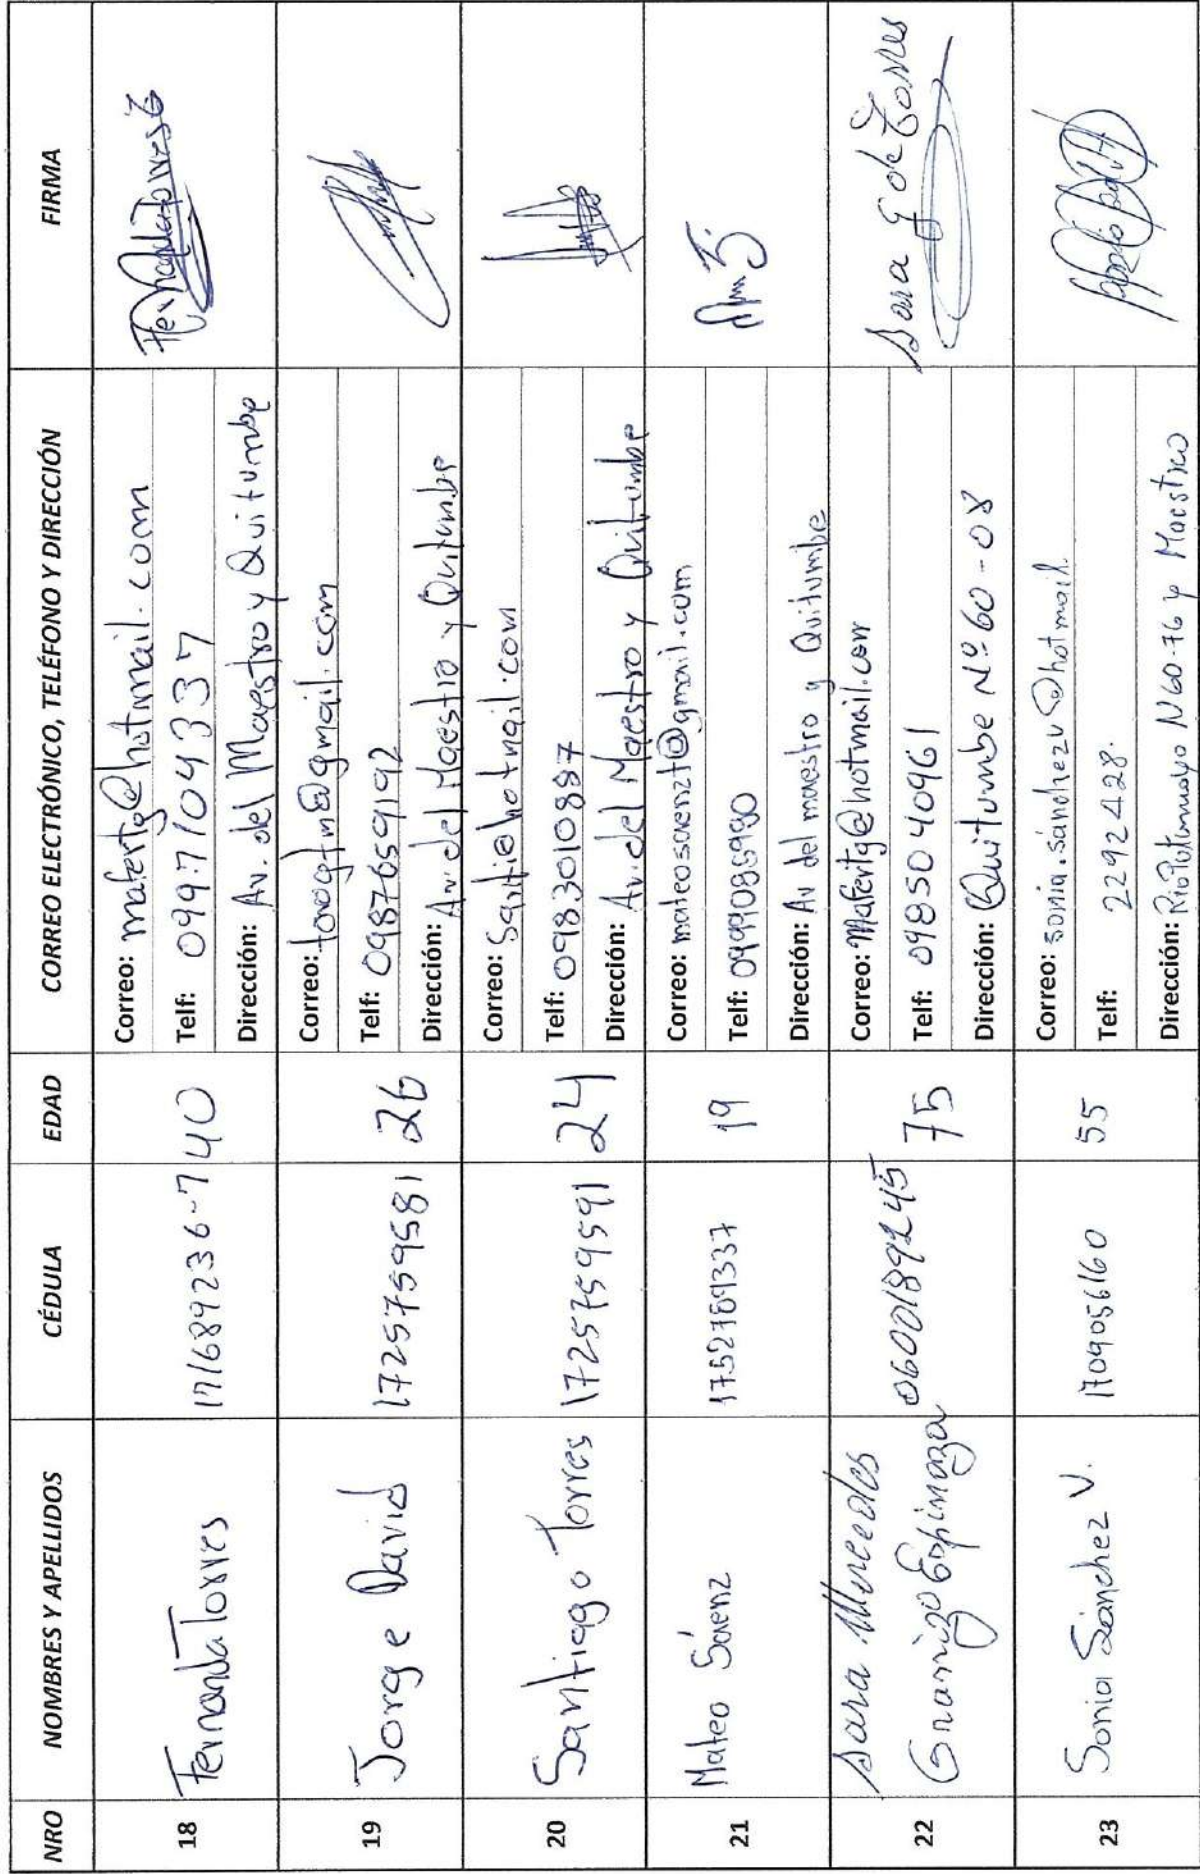 NRO NOMBRES Y APELLIDOS CÉDULA EDAD CORREO ELECTRÓNICO, TELÉFONO Y DIRECCIÓN FIRMA
18 Fernanda Torres 171689236-7 40
Correo: mafertg@hotmail.com
Telf: 0997104337
Dirección: Av. del Maestro y Quitumbe
19 Jorge David 1725759581 26
Correo:
Telf: 0987659192
Dirección: Av. del Maestro y Quitumbe
20 Santiago Torres 1725759591 24
Correo:
Telf: 0983010887
Dirección: Av. del Maestro y Quitumbe
21 Mateo Sáenz 19
Correo: mateosaenzt@gmail.com
Telf:
Dirección: Av del maestro y Quitumbe
22 Sara Mercedes
Granizo Espinoza 75
Correo: Mafertg@hotmail.com
Telf: 0985040961
Dirección: Quitumbe Nº 60-08
Sara G de Torres
23 Sonia Sánchez V. 1709056160 55
Correo: sonia.sánchezv@hotmail.
Telf: 2292428.
Dirección: Rio Putumayo N60-76 y Maestro